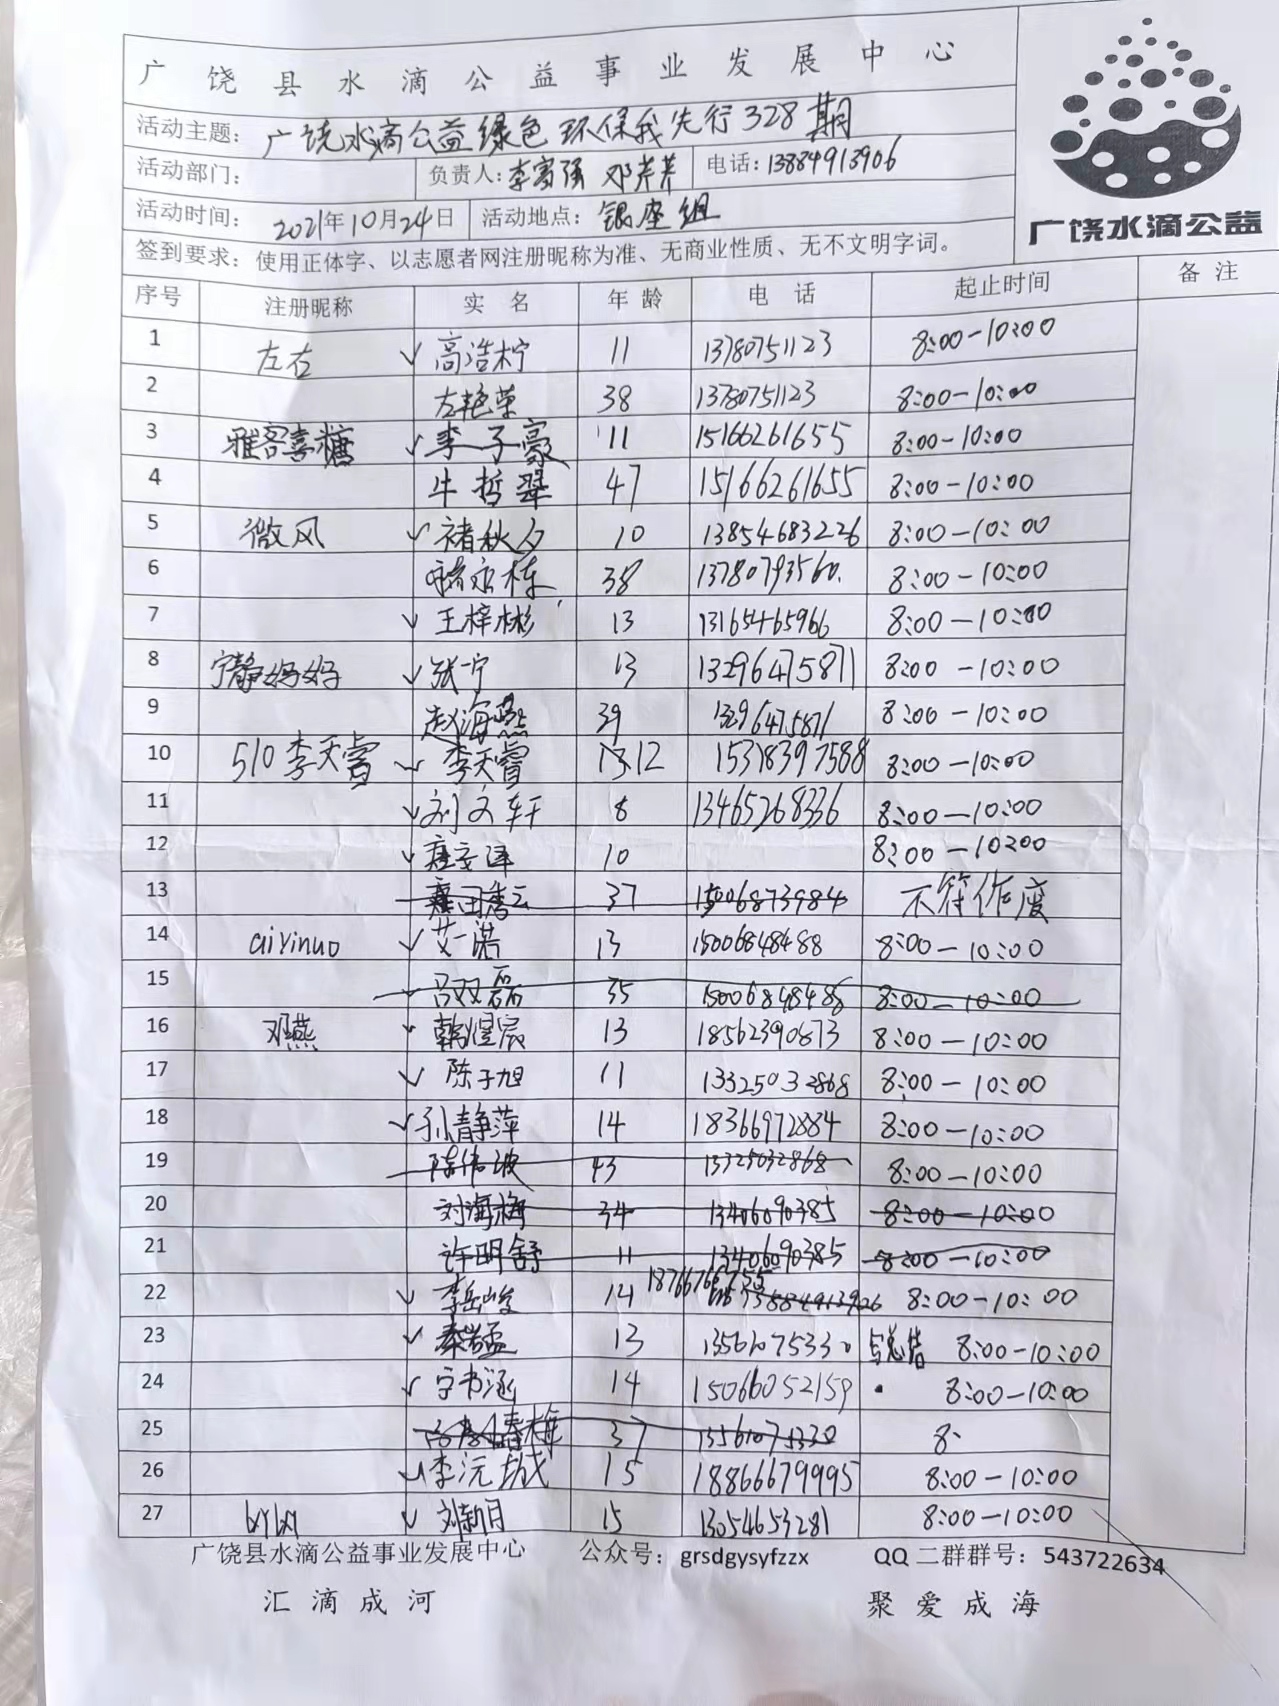 广饶县水滴公益事业发展中心
广饶水滴公益
活动主题：广饶水滴公益绿色环保我先行328期
活动部门： 负责人：李富强 邓芹芹 电话：13884913906
活动时间：2021年10月24日 活动地点：银座组
签到要求：使用正体字、以志愿者网注册昵称为准、无商业性质、无不文明字词。
序号 注册昵称 实名 年龄 电话 起止时间 备注
1 左右 ✓高浩柠 11 13780751123 8:00-10:00
2 左艳荣 38 13780751123 8:00-10:00
3 雅客喜糖 ✓李子豪 11 15166261655 8:00-10:00
4 牛哲翠 47 15166261655 8:00-10:00
5 微风 ✓褚秋夕 10 13854683226 8:00-10:00
6 38 13780793560. 8:00-10:00
7 ✓王梓彬 13 13165465966 8:00-10:00
8 宁静妈妈 ✓张宁 13 13296475871 8:00-10:00
9 赵海燕 39 13296475871 8:00-10:00
10 510李天睿 ✓李天睿 12 15318397588 8:00-10:00
11 ✓刘文轩 8 13465268336 8:00-10:00
12 10 8:00-10:00
13 37 15006873984 不符作废
14 aiyinuo ✓艾一诺 13 15006848488 8:00-10:00
15 吕双磊 35 15006848488 8:00-10:00
16 邓燕 韩煜宸 13 18562390873 8:00-10:00
17 ✓陈子旭 11 13325032868 8:00-10:00
18 ✓孙静萍 14 18366972884 8:00-10:00
19 陈伟波 43 13325032868 8:00-10:00
20 刘海梅 34 13406090385 8:00-10:00
21 许明舒 11 13406090385 8:00-10:00
22 ✓李岳峻 14 18766766755 13884913906 8:00-10:00
23 ✓秦岩孟 13 13561075330 写总结 8:00-10:00
24 ✓宁书涵 14 15066052159 8:00-10:00
25 37 13561075330 8·
26 ✓李沅城 15 18866679995 8:00-10:00
27 ✓刘新月 15 13054653281 8:00-10:00
广饶县水滴公益事业发展中心 公众号：grsdgysyfzzx QQ二群群号：543722634
汇滴成河 聚爱成海